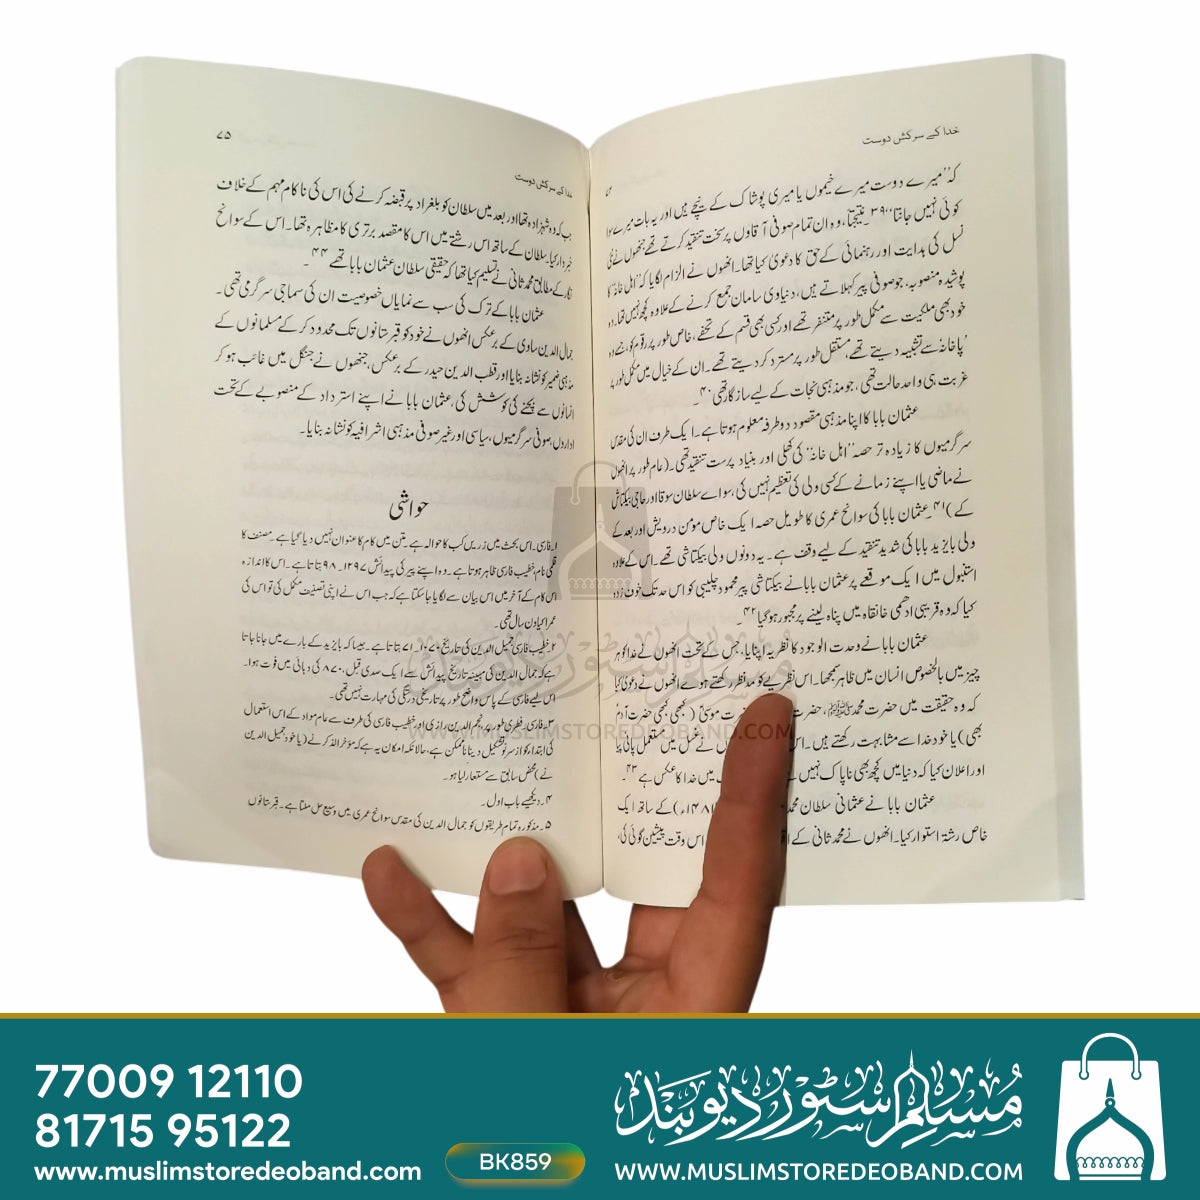 خدا کے سرکش دوست
کہ ”میرے دوست میرے خیموں یا میری پوشاک کے نیچے ہیں اور یہ بات میرے
کوئی نہیں جانتا“۳۹۔ نتیجتاً، وہ ان تمام صوفی آقاوں پر سخت تنقید کرتے تھے جنھوں نے
نسل کی ہدایت اور رہنمائی کے حق کا دعویٰ کیا تھا۔ انھوں نے الزام لگایا کہ ’اہل خانہ‘ کا
پوشیدہ منصوبہ، جو صوفی پیر کہلاتے ہیں، دنیاوی سامان جمع کرنے کے علاوہ کچھ نہیں تھا۔ وہ
خود بھی ملکیت سے مکمل طور پر متنفر تھے اور کسی بھی قسم کے تحفے، خاص طور پر رقوم کو، جسے وہ
’پاخانہ‘ سے تشبیہ دیتے تھے، مستقل طور پر مسترد کر دیتے تھے۔ ان کے خیال میں مکمل طور پر
غربت ہی واحد حالت تھی، جو مذہبی نجات کے لیے سازگار تھی۴۰۔
عثمان بابا کا اپنا مذہبی مقصود دو طرفہ معلوم ہوتا ہے۔ ایک طرف ان کی مقدس
سرگرمیوں کا زیادہ تر حصہ ’اہل خانہ‘ کی کھلی اور بنیاد پرست تنقید تھی۔ (عام طور پر انھوں
نے ماضی یا اپنے زمانے کے کسی ولی کی تعظیم نہیں کی، سواے سلطان سوقا اور حاجی بیکتاش
کے)۴۱۔ عثمان بابا کی سوانح عمری کا طویل حصہ ایک خاص مومن درویش اور بعد کے
ولی بایزید بابا کی شدید تنقید کے لیے وقف ہے۔ یہ دونوں ولی بیکتاشی تھے۔ اس کے علاوہ
استنبول میں ایک موقعے پر عثمان بابا نے بیکتاشی پیر محمود چلیبی کو اس حد تک خوف زدہ
کیا کہ وہ قریبی ادھمی خانقاہ میں پناہ لینے پر مجبور ہو گیا۴۲۔
عثمان بابا نے وحدت الوجود کا نظریہ اپنایا، جس کے تحت انھوں نے خدا کو ہر
چیز میں بالخصوص انسان میں ظاہر سمجھا۔ اس نظریے کو مد نظر رکھتے ہوے انھوں نے دعویٰ کیا
کہ وہ حقیقت میں حضرت محمد ﷺ، حضرت حضرت موسیٰؑ (کبھی کبھی حضرت آدمؑ
بھی) یا خود خدا سے مشابہت رکھتے ہیں۔ اس نے غسل میں مستعمل پانی پیا
اور اعلان کیا کہ دنیا میں کچھ بھی ناپاک نہیں میں خدا کا عکس ہے۴۳۔
عثمان بابا نے عثمانی سلطان محمد ۱۴۸۱ء) کے ساتھ ایک
خاص رشتہ استوار کیا۔ انھوں نے محمد ثانی کے اس وقت پیشین گوئی کی،
۷۵
خدا کے سرکش دوست
جب کہ وہ شہزادہ تھا اور بعد میں سلطان کو بلغراد پر قبضہ کرنے کی اس کی ناکام مہم کے خلاف
خبردار کیا۔ سلطان کے ساتھ اس رشتے میں اس کا مقصد برتری کا مظاہرہ تھا۔ اس کے سوانح
نگار کے مطابق محمد ثانی نے تسلیم کیا تھا کہ حقیقی سلطان عثمان بابا تھے۴۴۔
عثمان بابا کے ترک کی سب سے نمایاں خصوصیت ان کی سماجی سرگرمی تھی۔
جمال الدین ساوی کے برعکس انھوں نے خود کو قبرستانوں تک محدود کر کے مسلمانوں کے
مذہبی ضمیر کو نشانہ بنایا اور قطب الدین حیدر کے برعکس، جنھوں نے جنگل میں غائب ہو کر
انسانوں سے بچنے کی کوشش کی، عثمان بابا نے اپنے استرداد کے منصوبے کے تحت
اداروں، صوفی سرگرمیوں، سیاسی اور غیر صوفی مذہبی اشرافیہ کو نشانہ بنایا۔
حواشی
۱۔ فارسی۔ اس بحث میں زریں کب کا حوالہ ہے۔ متن میں کام کا عنوان نہیں دیا گیا ہے۔ مصنف کا
قلمی نام، خطیب فارسی ظاہر ہوتا ہے۔ وہ اپنے پیر کی پیدائش ۱۲۹۷۔۹۸ بتاتا ہے۔ اس کا اندازہ
اس کام کے آخر میں اس بیان سے لگایا جا سکتا ہے کہ جب اس نے اپنی تصنیف مکمل کی تو اس کی
عمر اکیاون سال تھی۔
۲۔ خطیب فارسی جمیل الدین کی تاریخ ۱۰۷۰۔۷۱ بتاتا ہے۔ جیسا کہ بایزید کے بارے میں جانا جاتا
ہے کہ جمال الدین کی مبینہ تاریخ پیدائش سے ایک صدی قبل، ۸۷۰ کی دہائی میں فوت ہوا۔
اس لیے فارسی کے پاس واضح طور پر تاریخی درستگی کی مہارت نہیں تھی۔
۳۔ فارسی، فطری طور پر، نجم الدین رازی اور خطیب فارسی کی طرف سے عام مواد کے اس استعمال
کی ابتدا کو از سر نو تشکیل دینا ناممکن ہے، حالانکہ امکان یہ ہے کہ مؤخر الذکر نے (یا خود جمیل الدین
نے) محض سابق سے مستعار لیا ہو۔
۴۔ دیکھیے باب اول۔
۵۔ مذکورہ تمام طریقوں کو جمال الدین کی مقدس سوانح عمری میں وسیع حل ملتا ہے۔ قبرستانوں
مسلم سٹور دیوبند
WWW.MUSLIMSTOREDEOBAND.COM
77009 12110
81715 95122
www.muslimstoredeoband.com
BK859
مسلم سٹور دیوبند
WWW.MUSLIMSTOREDEOBAND.COM